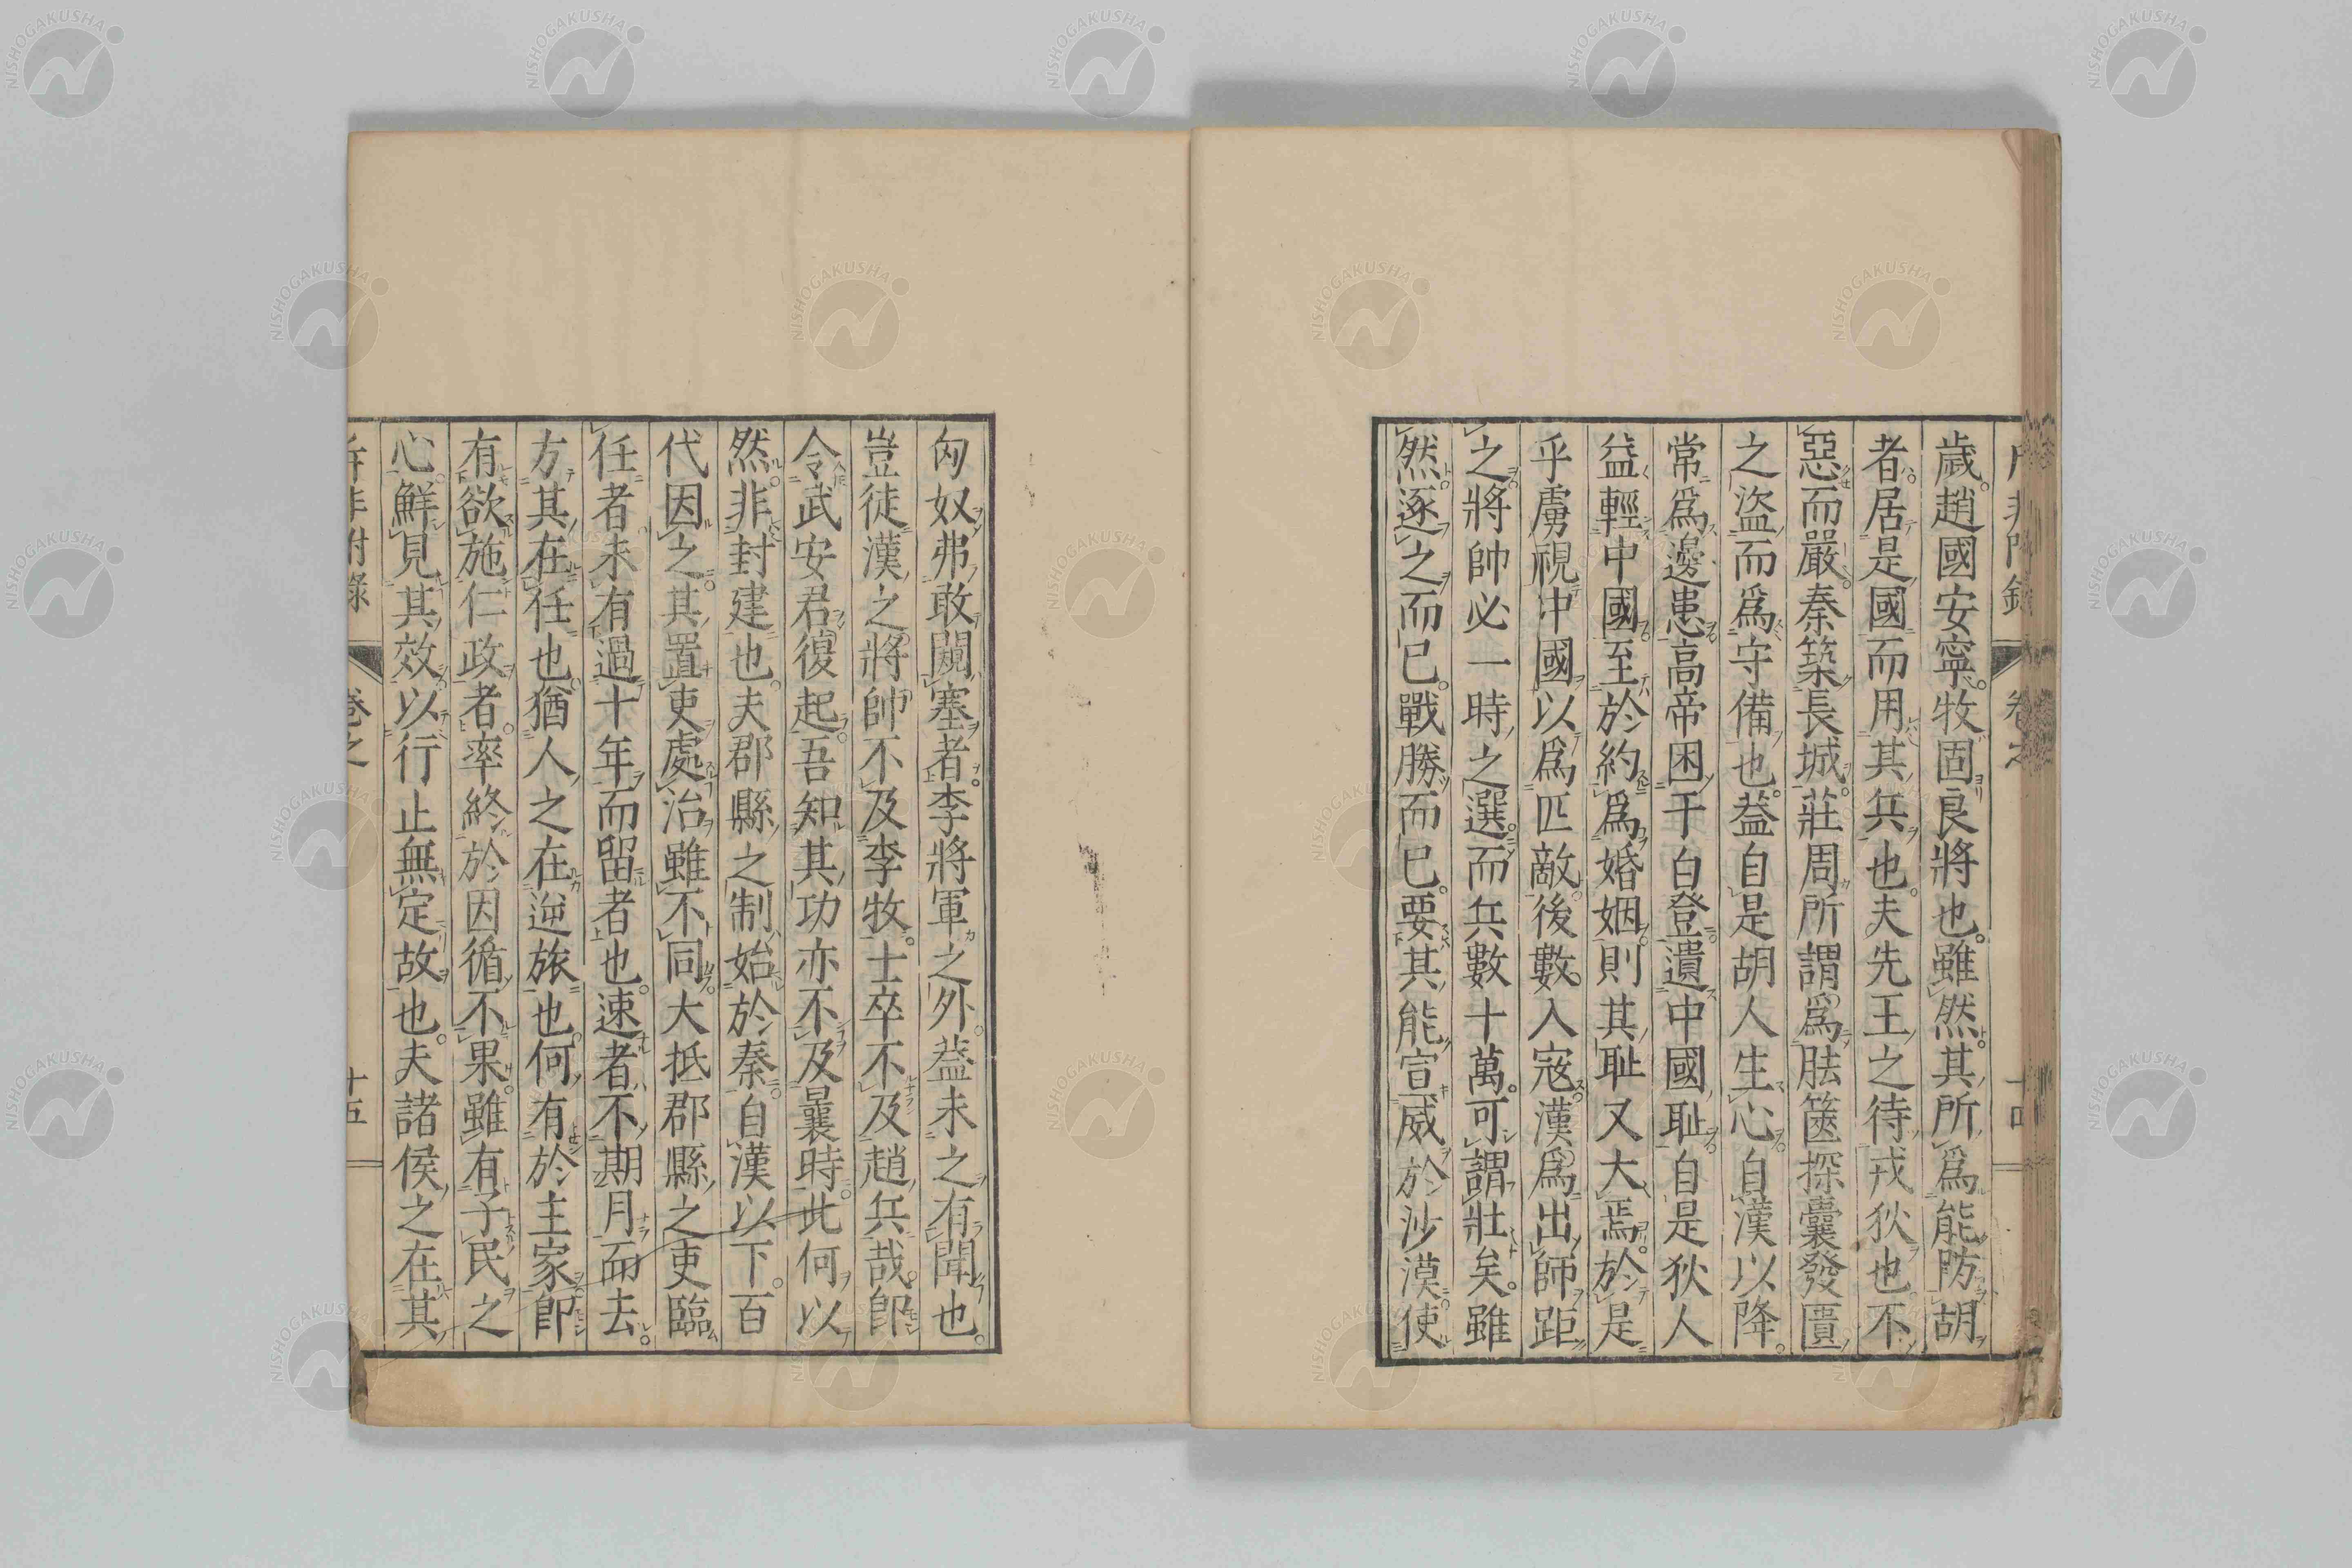 歲。趙國安寧。牧固良將也。雖然。其所爲能防胡
者。居是國而用其兵也。夫先王之待戎狄也。不
惡而嚴。秦築長城。莊周所謂爲胠篋探囊發匱
之盜而爲守備也。益自是胡人生心。自漢以降。
常爲邊患。高帝困于白登。遺中國耻。自是狄人
益輕中國。至於約爲婚姻。則其耻又大焉。於是
乎虜視中國以爲匹敵。後數入寇。漢爲出師距
之。將帥必一時之選。而兵數十萬。可謂壯矣。雖
然。逐之而已。戰勝而已。要其能宣威於沙漠。使
匈奴弗敢闚塞者。李將軍之外。益未之有聞也。
豈徒漢之將帥不及李牧。士卒不及趙兵哉。卽
令武安君復起。吾知其功亦不及曩時。此何以
然。非封建也。夫郡縣之制始於秦。自漢以下。百
代因之。其置吏處治雖不同。大抵郡縣之吏臨
任者。未有過十年而留者也。速者不期月而去。
方其在任也。猶人之在逆旅也。何有於主家。卽
有欲施仁政者。率終於因循不果。雖有子民之
心。鮮見其效。以行止無定故也。夫諸侯之在其
斥非附錄 卷之 十五